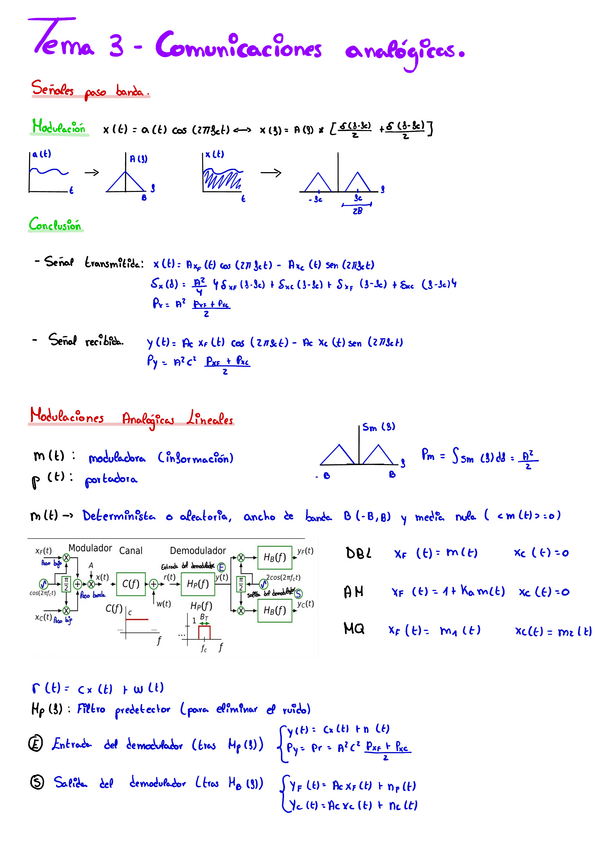 Tema 3 - Comunicaciones analógicas.
Señales paso banda.
Modulación x(t) = a(t) cos (2πfct) ⟷ x(f) = A(f) * [δ(f-fc)/2 + δ(f-fc)/2]
a(t) t → A(f) f B x(t) t → -fc fc f 2B
Conclusión
- Señal transmitida: x(t) = A xF(t) cos (2πfct) - A xc(t) sen (2πfct)
Sx(f) = A²/4 { SxF (f-fc) + Sxc (f-fc) + SxF (f-fc) + Sxc (f-fc) }
Pr = A² (PxF + Pxc)/2
- Señal recibida. y(t) = Ac xF(t) cos (2πfct) - Ac xc(t) sen (2πfct)
Py = A²c² (PxF + Pxc)/2
Modulaciones Analógicas Lineales
Sm (f)
m(t): moduladora (información)
p(t): portadora
- B B f
Pm = ∫ Sm (f) df = A²/2
m(t) → Determinista o aleatoria, ancho de banda B (-B,B) y media nula ( <m(t)>=0)
xF(t) Modulador Canal Demodulador HB(f) yF(t)
Paso bajo Entrada del demodulador E
A x(t) C(f) r(t) HP(f) y(t) 2cos(2πfct)
cos(2πfct) π/2 Paso banda w(t) π/2 Salida del demodulador S
xC(t) Paso bajo C(f) c HP(f) HB(f) yC(t)
1 BT
f fc f
DBL xF (t) = m(t) xc (t) = 0
AM xF (t) = 1 + Ka m(t) xc (t) = 0
MQ xF (t) = m1 (t) xc(t) = m2 (t)
r (t) = c x (t) + w (t)
Hp (f) : Filtro predetector (para eliminar el ruido)
E Entrada del demodulador (tras Hp (f)) { y(t) = Cx(t) + n (t)
Py = Pr = A²C² (PxF + Pxc)/2
S Salida del demodulador (tras HB (f)) { yF (t) = Ac xF (t) + nF (t)
yc (t) = Ac xc (t) + nc (t)